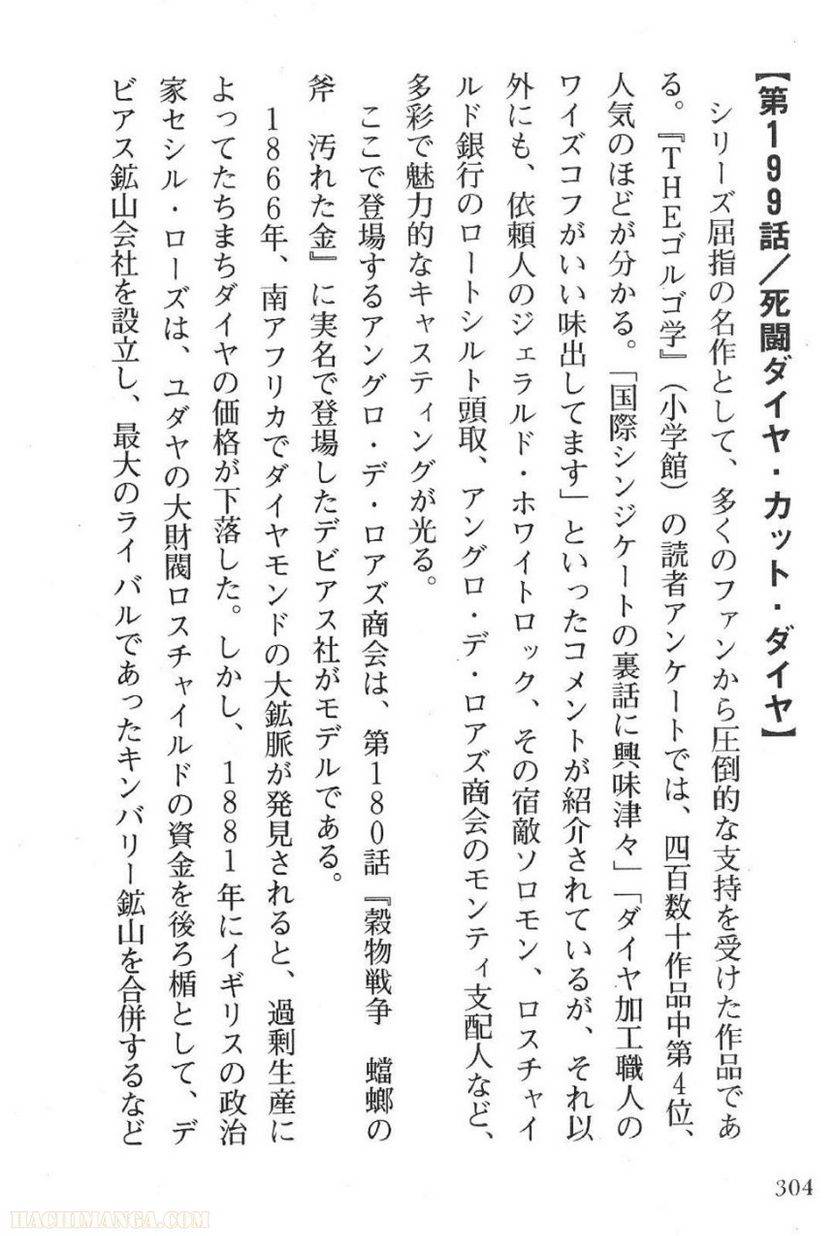 【第199話／死闘ダイヤ・カット・ダイヤ】
シリーズ屈指の名作として、多くのファンから圧倒的な支持を受けた作品であ
る。『THEゴルゴ学』（小学館）の読者アンケートでは、四百数十作品中第4位、
人気のほどが分かる。「国際シンジケートの裏話に興味津々」「ダイヤ加工職人の
ワイズコフがいい味出してます」といったコメントが紹介されているが、それ以
外にも、依頼人のジェラルド・ホワイトロック、その宿敵ソロモン、ロスチャイ
ルド銀行のロートシルト頭取、アングロ・デ・ロアズ商会のモンティ支配人など、
多彩で魅力的なキャスティングが光る。
ここで登場するアングロ・デ・ロアズ商会は、第180話『穀物戦争　蟷螂の
斧　汚れた金』に実名で登場したデビアス社がモデルである。
1866年、南アフリカでダイヤモンドの大鉱脈が発見されると、過剰生産に
よってたちまちダイヤの価格が下落した。しかし、1881年にイギリスの政治
家セシル・ローズは、ユダヤの大財閥ロスチャイルドの資金を後ろ楯として、デ
ビアス鉱山会社を設立し、最大のライバルであったキンバリー鉱山を合併するなど
304
HACHIMANGA.COM